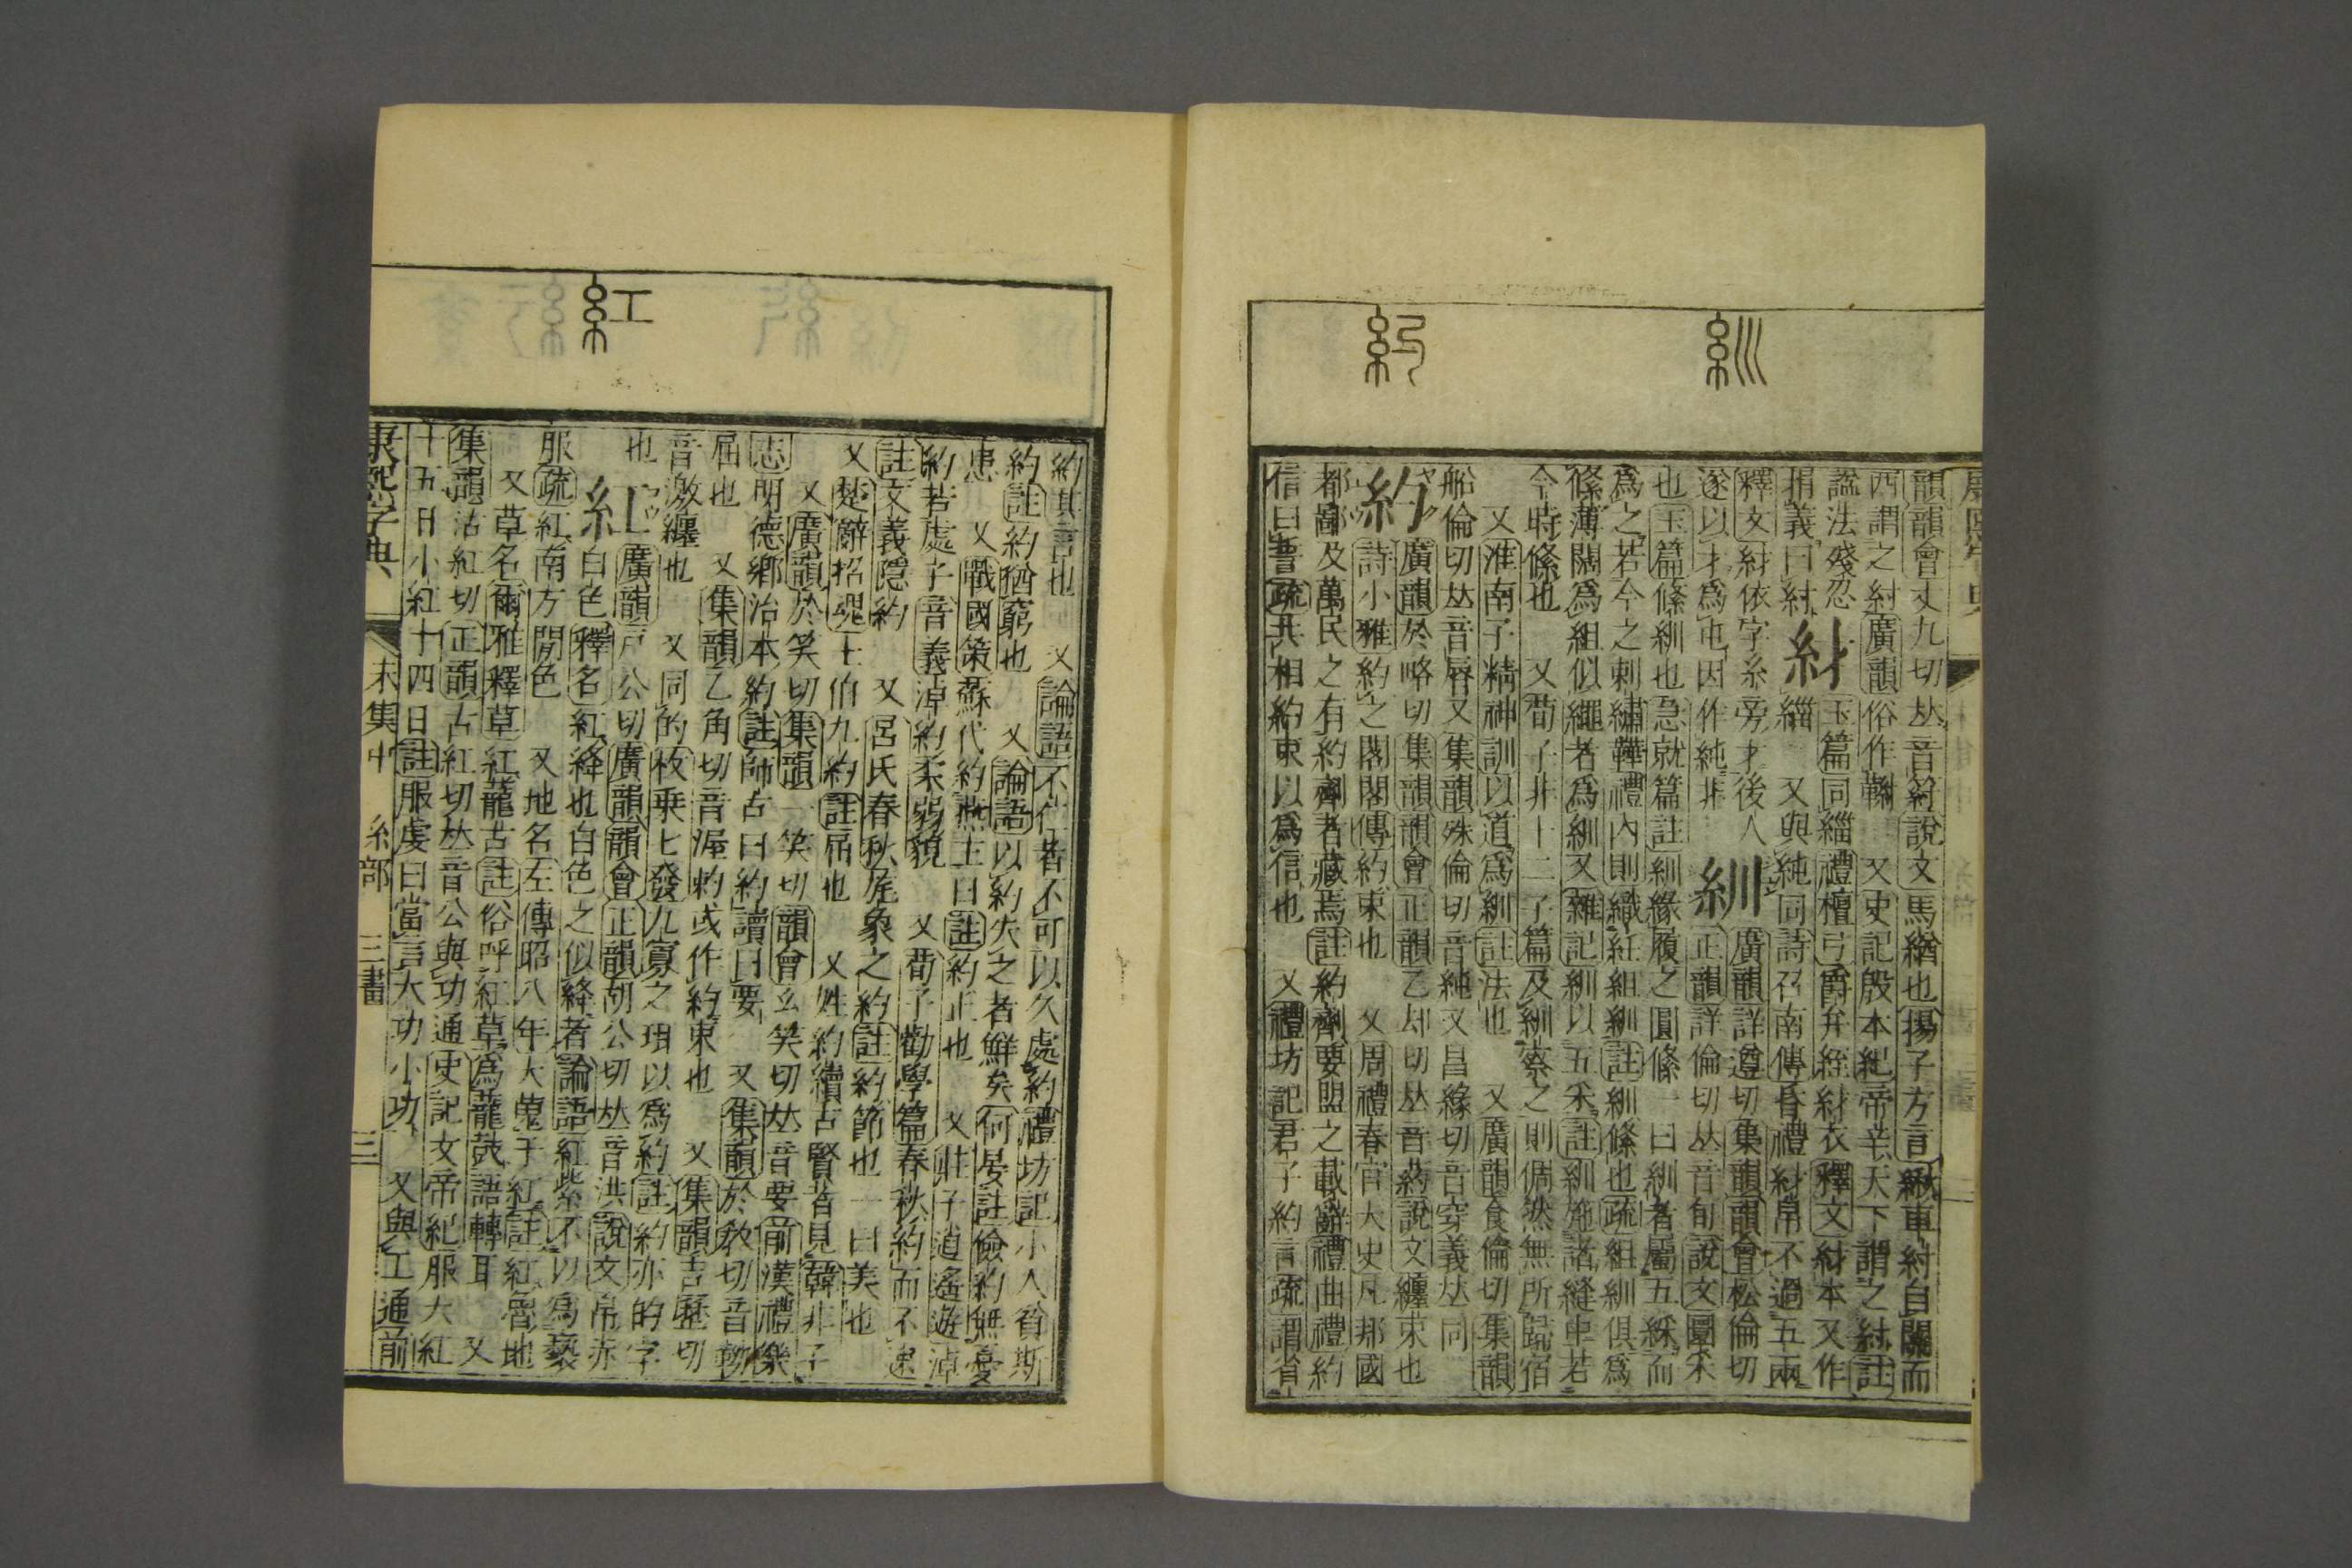 紃
約
韻韻會丈九切𠀤音紂說文馬緧也揚子方言緧車紂自關而
西謂之紂廣韻俗作䋺 又史記殷本紀帝辛天下謂之紂註
諡法殘忍
捐義曰紂 紂 玉篇同緇禮檀弓爵弁絰紂衣釋文紂本又作
緇 又與純同詩召南傳昏禮紂帛不過五兩
釋文紂依字糸旁才後人
遂以才爲屯因作純非 紃 廣韻詳遵切集韻韻會松倫切
正韻詳倫切𠀤音旬說文圜采
也玉篇絛紃也急就篇註紃緣履之圓絛一曰紃者屬五綵而
爲之若今之刺繡韡禮內則織紅組紃註紃絛也疏組紃俱爲
絛薄闊爲組似繩者爲紃又雜記紃以五采註紃施諸縫中若
今時絛也 又荀子非十二子篇及紃察之則倜然無所歸宿
又淮南子精神訓以道爲紃註法也 又廣韻食倫切集韻
船倫切𠀤音脣又集韻殊倫切音純又昌緣切音穿義𠀤同
約 廣韻於略切集韻韻會正韻乙却切𠀤音葯說文纏束也
詩小雅約之閣閣傳約束也 又周禮春官大史凡邦國
都鄙及萬民之有約劑者藏焉註約劑要盟之載辭禮曲禮約
信曰誓疏共相約束以爲信也 又禮坊記君子約言疏謂省
約其言也 又論語不仁者不可以久處約禮坊記小人貧斯
約註約猶窮也 又論語以約失之者鮮矣何晏註儉約無憂
患 又戰國策蘇代約燕王曰註約止也 又莊子逍遙遊淖
約若處子音義淖約柔弱貌 又荀子勸學篇春秋約而不速
註文義隱約 又呂氏春秋旄象之約註約節也一曰美也
又楚辭招魂土伯九約註屈也 又姓約續古賢者見韓非子
又廣韻於笑切集韻一笑切韻會幺笑切𠀤音要前漢禮樂
志明德鄉治本約註師古曰約讀曰要 又集韻於敎切音靿
屈也 又集韻乙角切音渥約或作約東也 又集韻吉歷切
音激纏也 又同的枚乗七發九寡之珥以爲約註約亦的字
也 紅 廣韻戸公切廣韻韻會正韻胡公切𠀤音洪說文帛赤
白色釋名紅絳也白色之似絳者論語紅紫不以爲褻
服疏紅南方閒色 又地名左傳昭八年大蒐于紅註紅魯地
又草名爾雅釋草紅蘢古註俗呼紅草爲蘢鼓語轉耳 又
集韻沽紅切正韻古紅切𠀤音公與功通史記文帝紀服大紅
十五日小紅十四日註服虔曰當言大功小功 又與工通前
紅
康熙字典 未集中 糸部 三畫 三